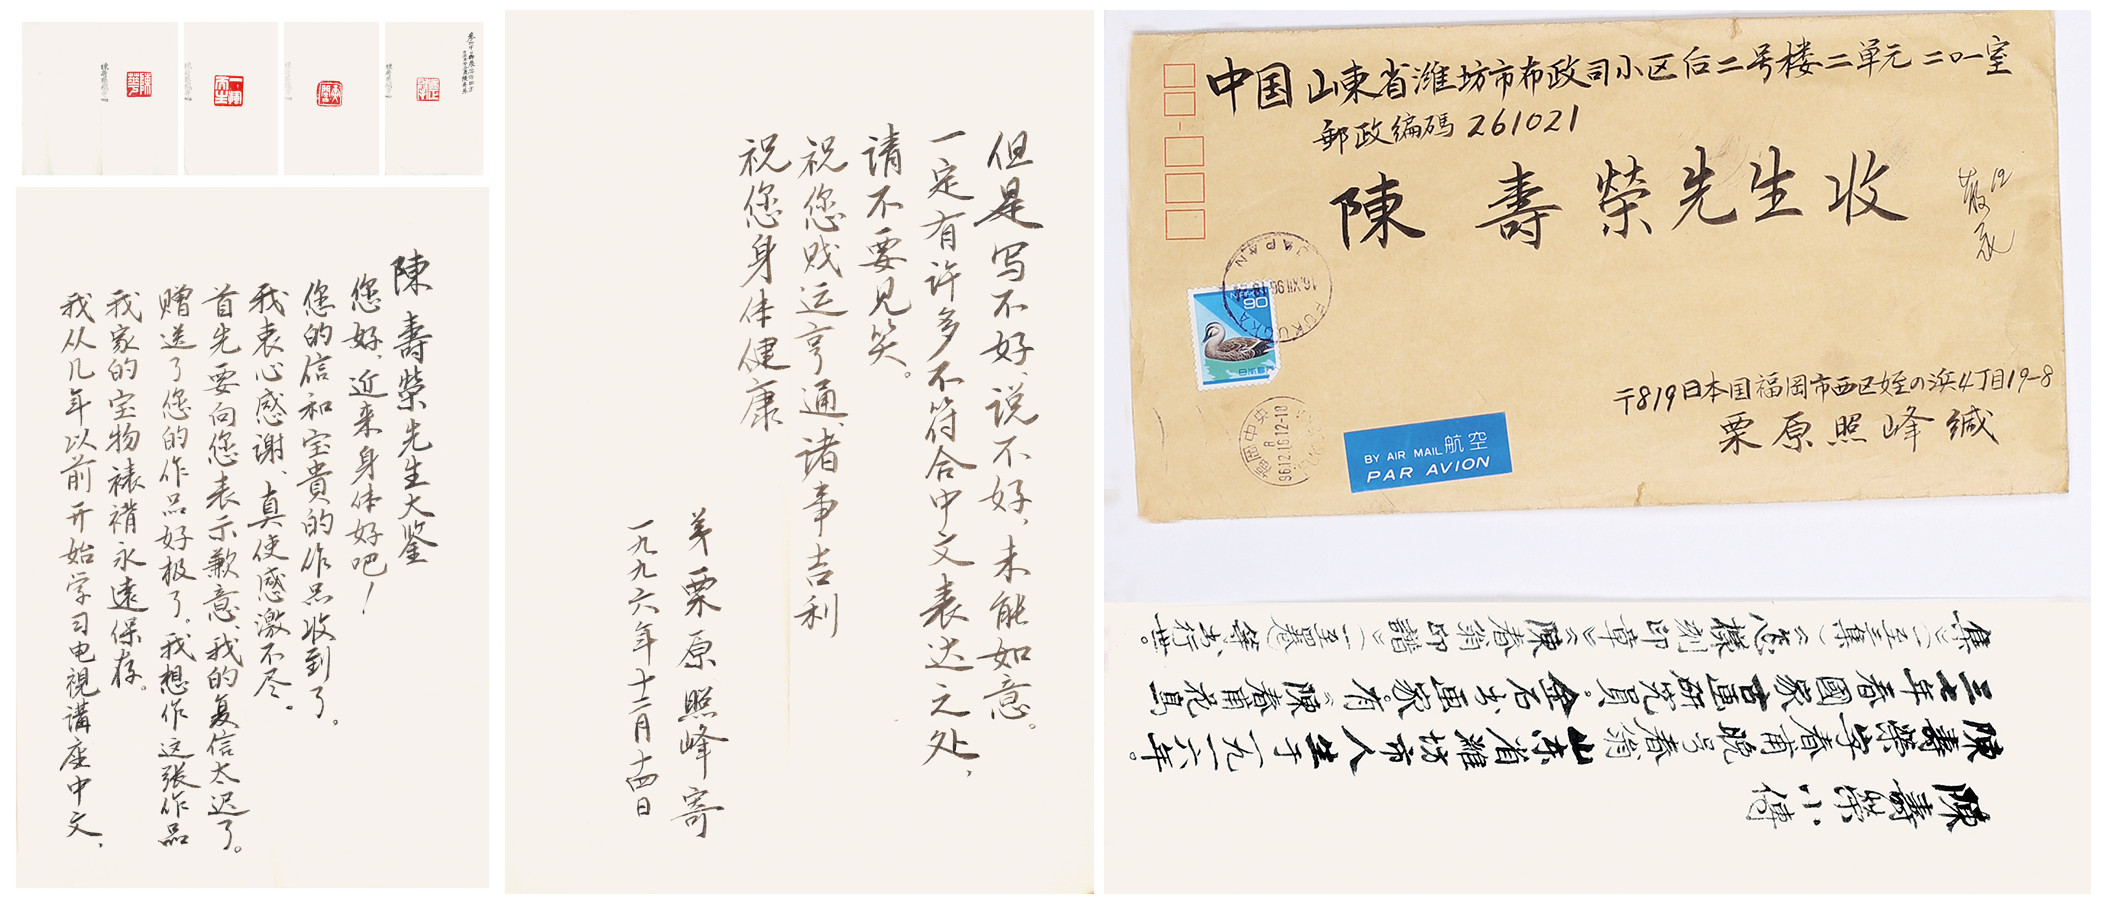 陳壽榮先生大鉴
您好、近来身体好吧！
您的信和宝貴的作品收到了。
我衷心感谢、真使感激不尽。
首先要向您表示歉意、我的复信太迟了。
赠送了您的作品好极了。我想作这张作品
我家的宝物裱褙永遠保存。
我从几年以前开始学习电視講座中文，
但是写不好、说不好，未能如意。
一定有许多不符合中文表达之处，
请不要见笑。
祝您贱运亨通、诸事吉利
祝您身体健康
弟栗原照峰寄
一九九六年十二月十四日
中国山東省潍坊市布政司小区后二号楼二单元二〇一室
郵政编碼261021
陳壽榮先生收
JAPAN
16.XII.96
FUKUOKA
90
日本郵便
福岡中央
8
96.12.16.12-18
BY AIR MAIL 航空
PAR AVION
〒819日本国福岡市西区姪の浜4丁目19-8
栗原照峰缄
陳壽榮小傳
陳壽榮字春甫晚号春翁山东省潍坊市人生于一九一六年。